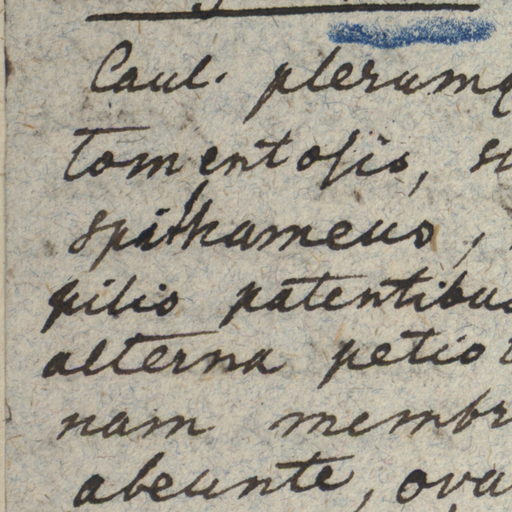 Caul. plerumq
tomentosis, su
spithameus,
pilis patentibus
alterna petio
nam membr
abeunte, ova